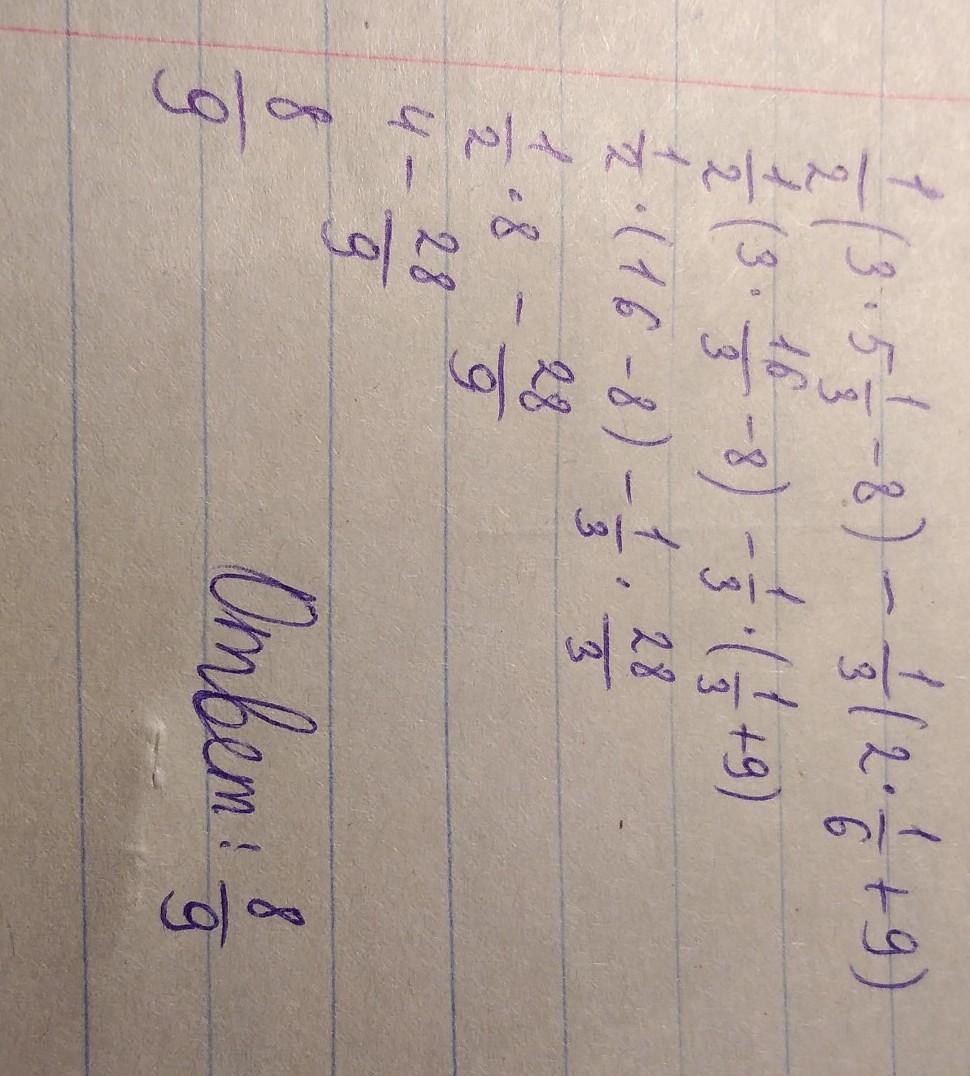 1/2 (3 · 5 1/3 - 8) - 1/3 (2 · 1/6 + 9)
1/2 (3 · 16/3 - 8) - 1/3 · (1/3 + 9)
1/2 · (16 - 8) - 1/3 · 28/3
1/2 · 8 - 28/9
4 - 28/9
8/9
Ответ: 8/9